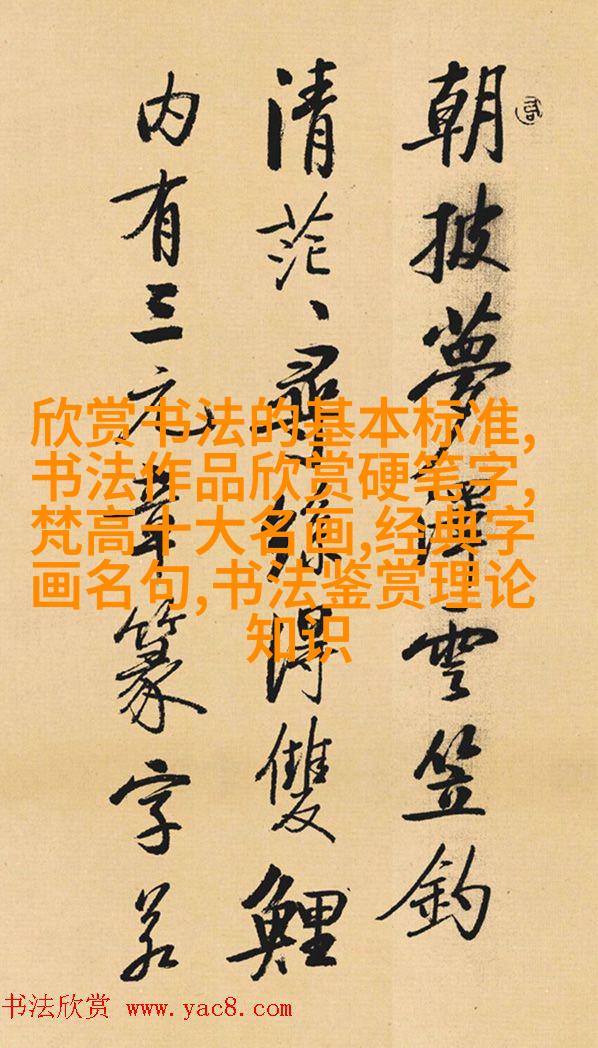 朝披夢澤雲笠釣
清茫、尋絲得雙鯉
内有三元章篆字若
欣赏书法的基本标准,
书法作品欣赏硬笔字,
梵高十大名画,经典字
画名句,书法鉴赏理论
知识
书法欣赏 www.yac8.com